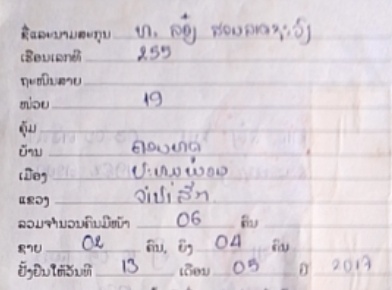 ຊື່ແລະນາມສະກຸນ ທ.
ເຮືອນເລກທີ 255
ຖະໜົນສາຍ
ໜ່ວຍ 19
ຄຸ້ມ
ບ້ານ
ເມືອງ
ແຂວງ ຈໍາປາສັກ
ລວມຈຳນວນຄົນມີໜ້າ 06 ຄົນ
ຊາຍ 02 ຄົນ, ຍິງ 04 ຄົນ
ຢັ້ງຢືນໃຫ້ວັນທີ 13 ເດືອນ 05 ປີ 2017